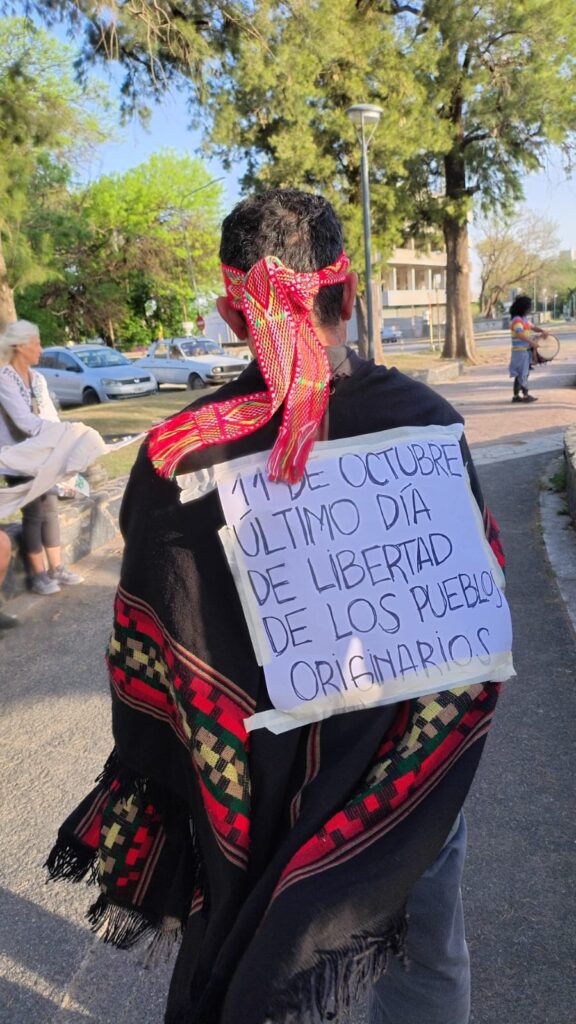 11 DE OCTUBRE
ÚLTIMO DÍA
DE LIBERTAD
DE LOS PUEBLOS
ORIGINARIOS